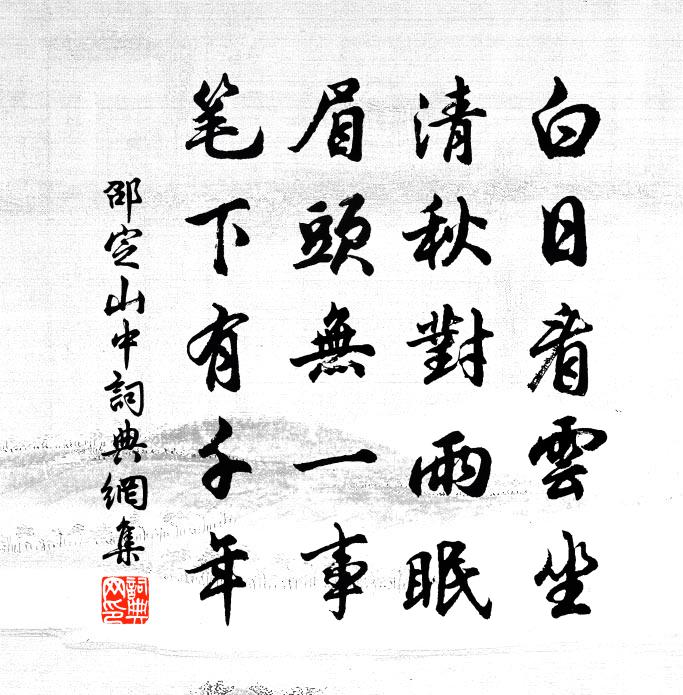 白日看雲坐
清秋對雨眠
眉頭無一事
笔下有千年
邵定山中詞典網集
詞典網印